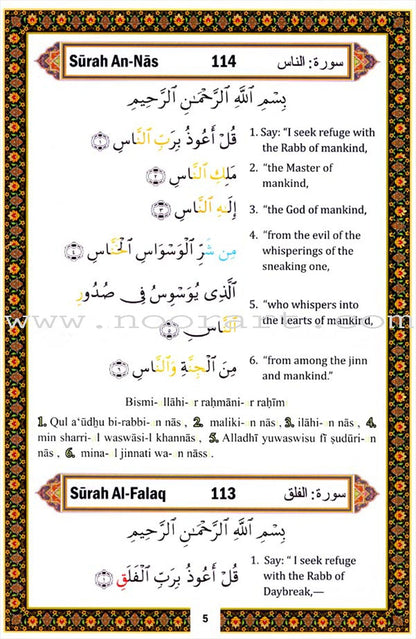 Sūrah An-Nās 114 سورة: الناس
بِسْمِ ٱللَّهِ ٱلرَّحْمَٰنِ ٱلرَّحِيمِ
قُلْ أَعُوذُ بِرَبِّ ٱلنَّاسِ ١
1. Say: “I seek refuge with
the Rabb of mankind,
مَلِكِ ٱلنَّاسِ ٢
2. “the Master of
mankind,
إِلَٰهِ ٱلنَّاسِ ٣
3. “the God of mankind,
مِن شَرِّ ٱلْوَسْوَاسِ ٱلْخَنَّاسِ ٤
4. “from the evil of the
whisperings of the
sneaking one,
ٱلَّذِى يُوَسْوِسُ فِى صُدُورِ
ٱلنَّاسِ ٥
5. “who whispers into
the l earts of mankind,
مِنَ ٱلْجِنَّةِ وَٱلنَّاسِ ٦
6. “from among the jinn
and mankind.”
www.noorart.com
Bismi- llāhi- r raḥmāni- r raḥīm
1. Qul a‘ūdhu bi-rabbi- n nās , 2. maliki- n nās , 3. ilāhi- n nās , 4.
min sharri- l waswāsi-l khannās , 5. Alladhī yuwaswisu fī ṣudūri- n
nās , 6. mina- l jinnati wa- n nāss .
Sūrah Al-Falaq 113 سورة: الفلق
بِسْمِ ٱللَّهِ ٱلرَّحْمَٰنِ ٱلرَّحِيمِ
قُلْ أَعُوذُ بِرَبِّ ٱلْفَلَقِ ١
1. Say: “ I seek refuge
with the Rabb of
Daybreak,—
5